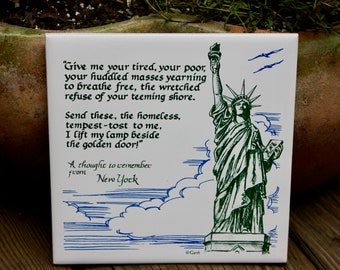 "Give me your tired, your poor,
your huddled masses yearning
to breathe free, the wretched
refuse of your teeming shore.
Send these, the homeless,
tempest-tost to me.
I lift my lamp beside
the golden door!"
A thought to remember
from
New York